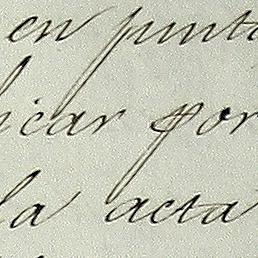 en punta
icar por
la acta